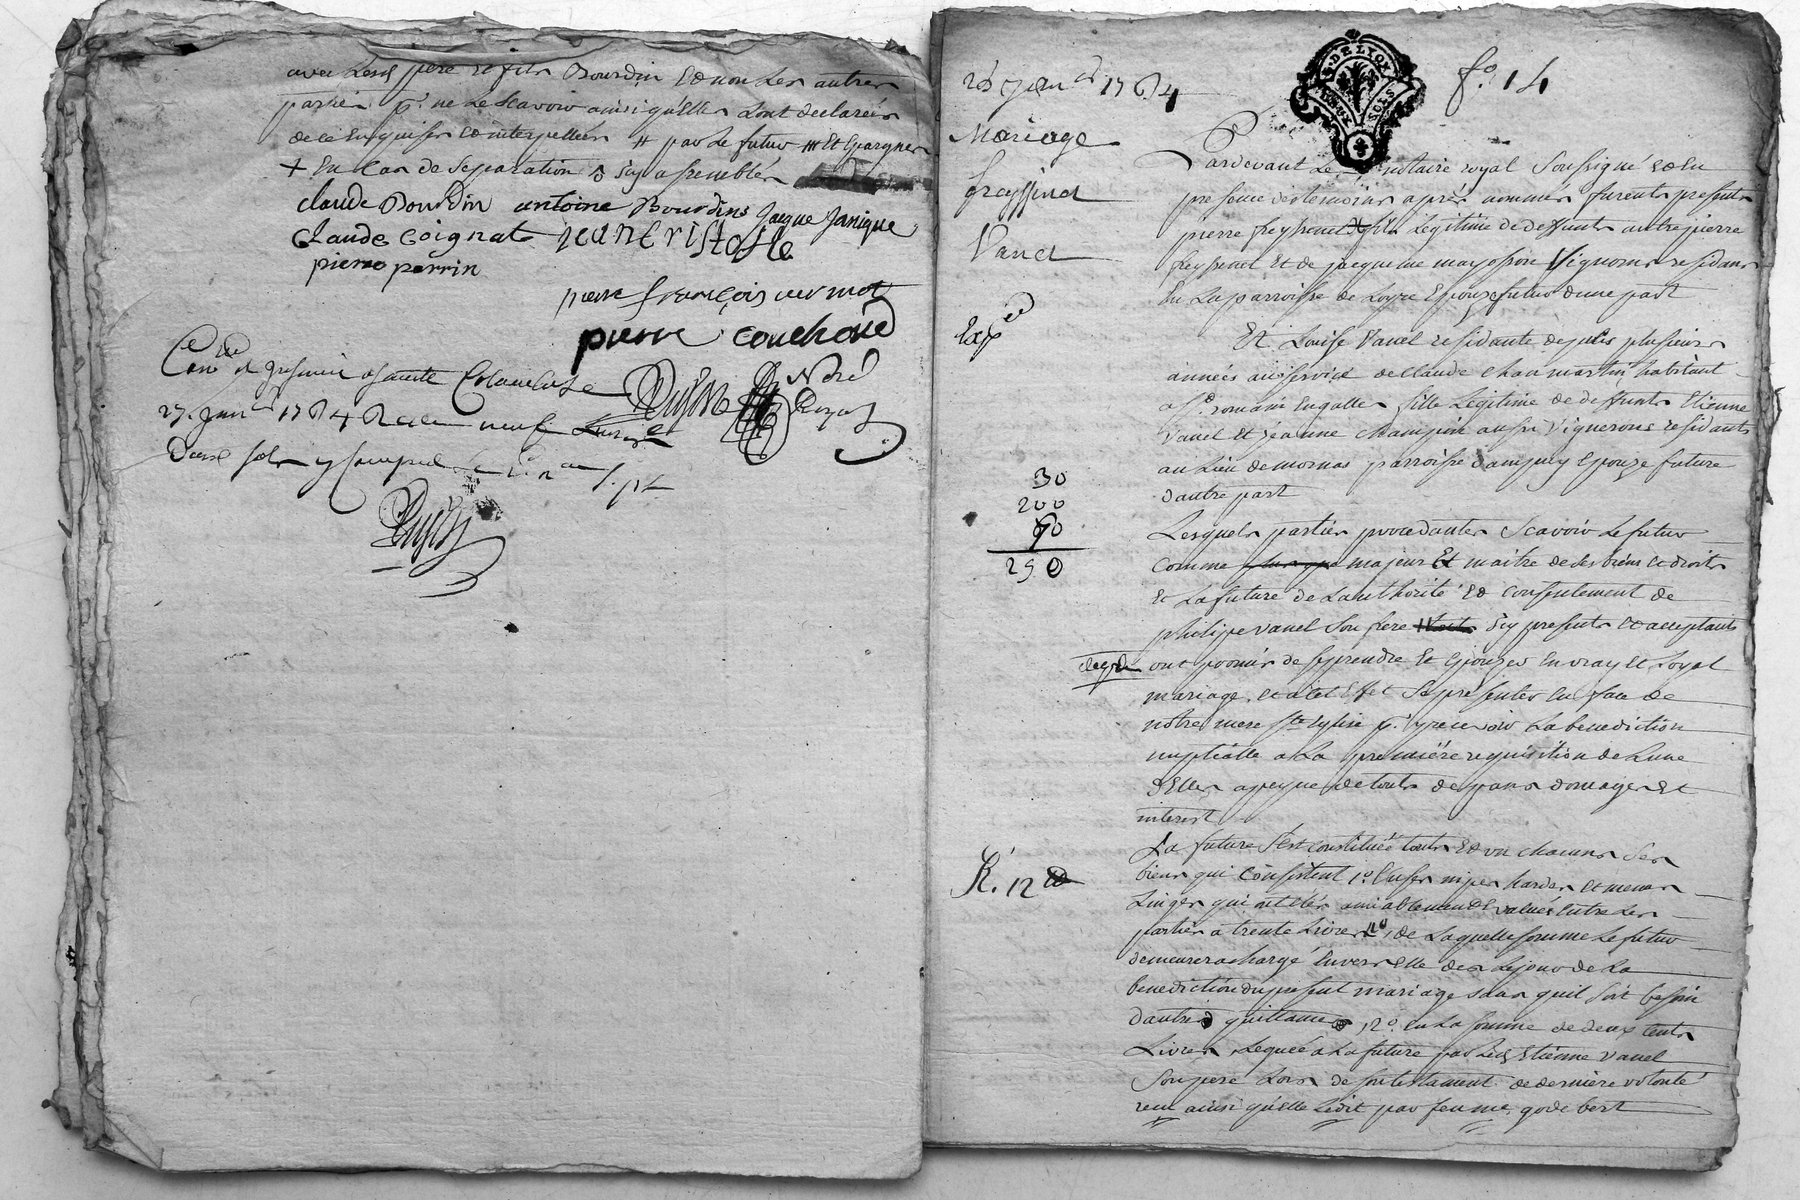 avec lesd pere et fils Bourdin et non les autres
parties pr ne le scavoir ainsi qu'elles l'ont declarées
de ce enquises et interpellées # par le futur et epargnes
+ en cas de separation s'y assemblés
claude Bourdin antoine Bourdin Jacque Janique
Claude Coignat jean cristofle
pierre perrin
pierre françois
pierre couchoud
27. janer 1764 neuf
26 janer 1764
fo. 14
G. DE LYON
Mariage
freyssinet
Vanel
Expée
30
200
60
290
R. 12
Pardevant le notaire royal soussigné et en
presence des temoins apres nommés furent presents
pierre freyssenet fils legitime de deffunts autre pierre
freyssenet et de jacqueme mayosson vignerons residans
en la parroisse de Loyre epouze futur d'une part
Et Louise Vanel residante depuis plusieurs
années au service de claude chaumartin habitant
a St. romain en galles fille legitime de deffunts Etienne
Vanel et jeanne champin aussi vignerons residants
au lieu de mornas parroisse d'ampuy epouze future
d'autre part
Lesquels parties procedantes scavoir le futur
comme majeur et maitre de ses biens et droits
et la future de l'authorité et consentement de
philippe vanel son frere icy presents et acceptants
ont promis de se prendre et epouzer en vray et loyal
mariage, et a cet effet se presenter en face de
notre mere ste eglise pr. y recevoir la benediction
nuptialle a la premiére requisition de l'une
d'elles a peyne de touts depans domages et
interest
La future s'est constituée touts et un chacuns ses
biens qui consistent 1o. en ses nipes hardes et menus
linges qui ont étés amiablement evalués entre les
parties a trente livres de laquelle somme le futur
demeurera chargé envers elle des le jour de la
benediction du present mariage sans quil soit besoin
d'autre quittance, 2o. en la somme de deux cents
livres leguée a la future par led Etienne vanel
son pere lors de son testament de derniere volonté
recu ainsi qu'elle le dit par feu me. godebert